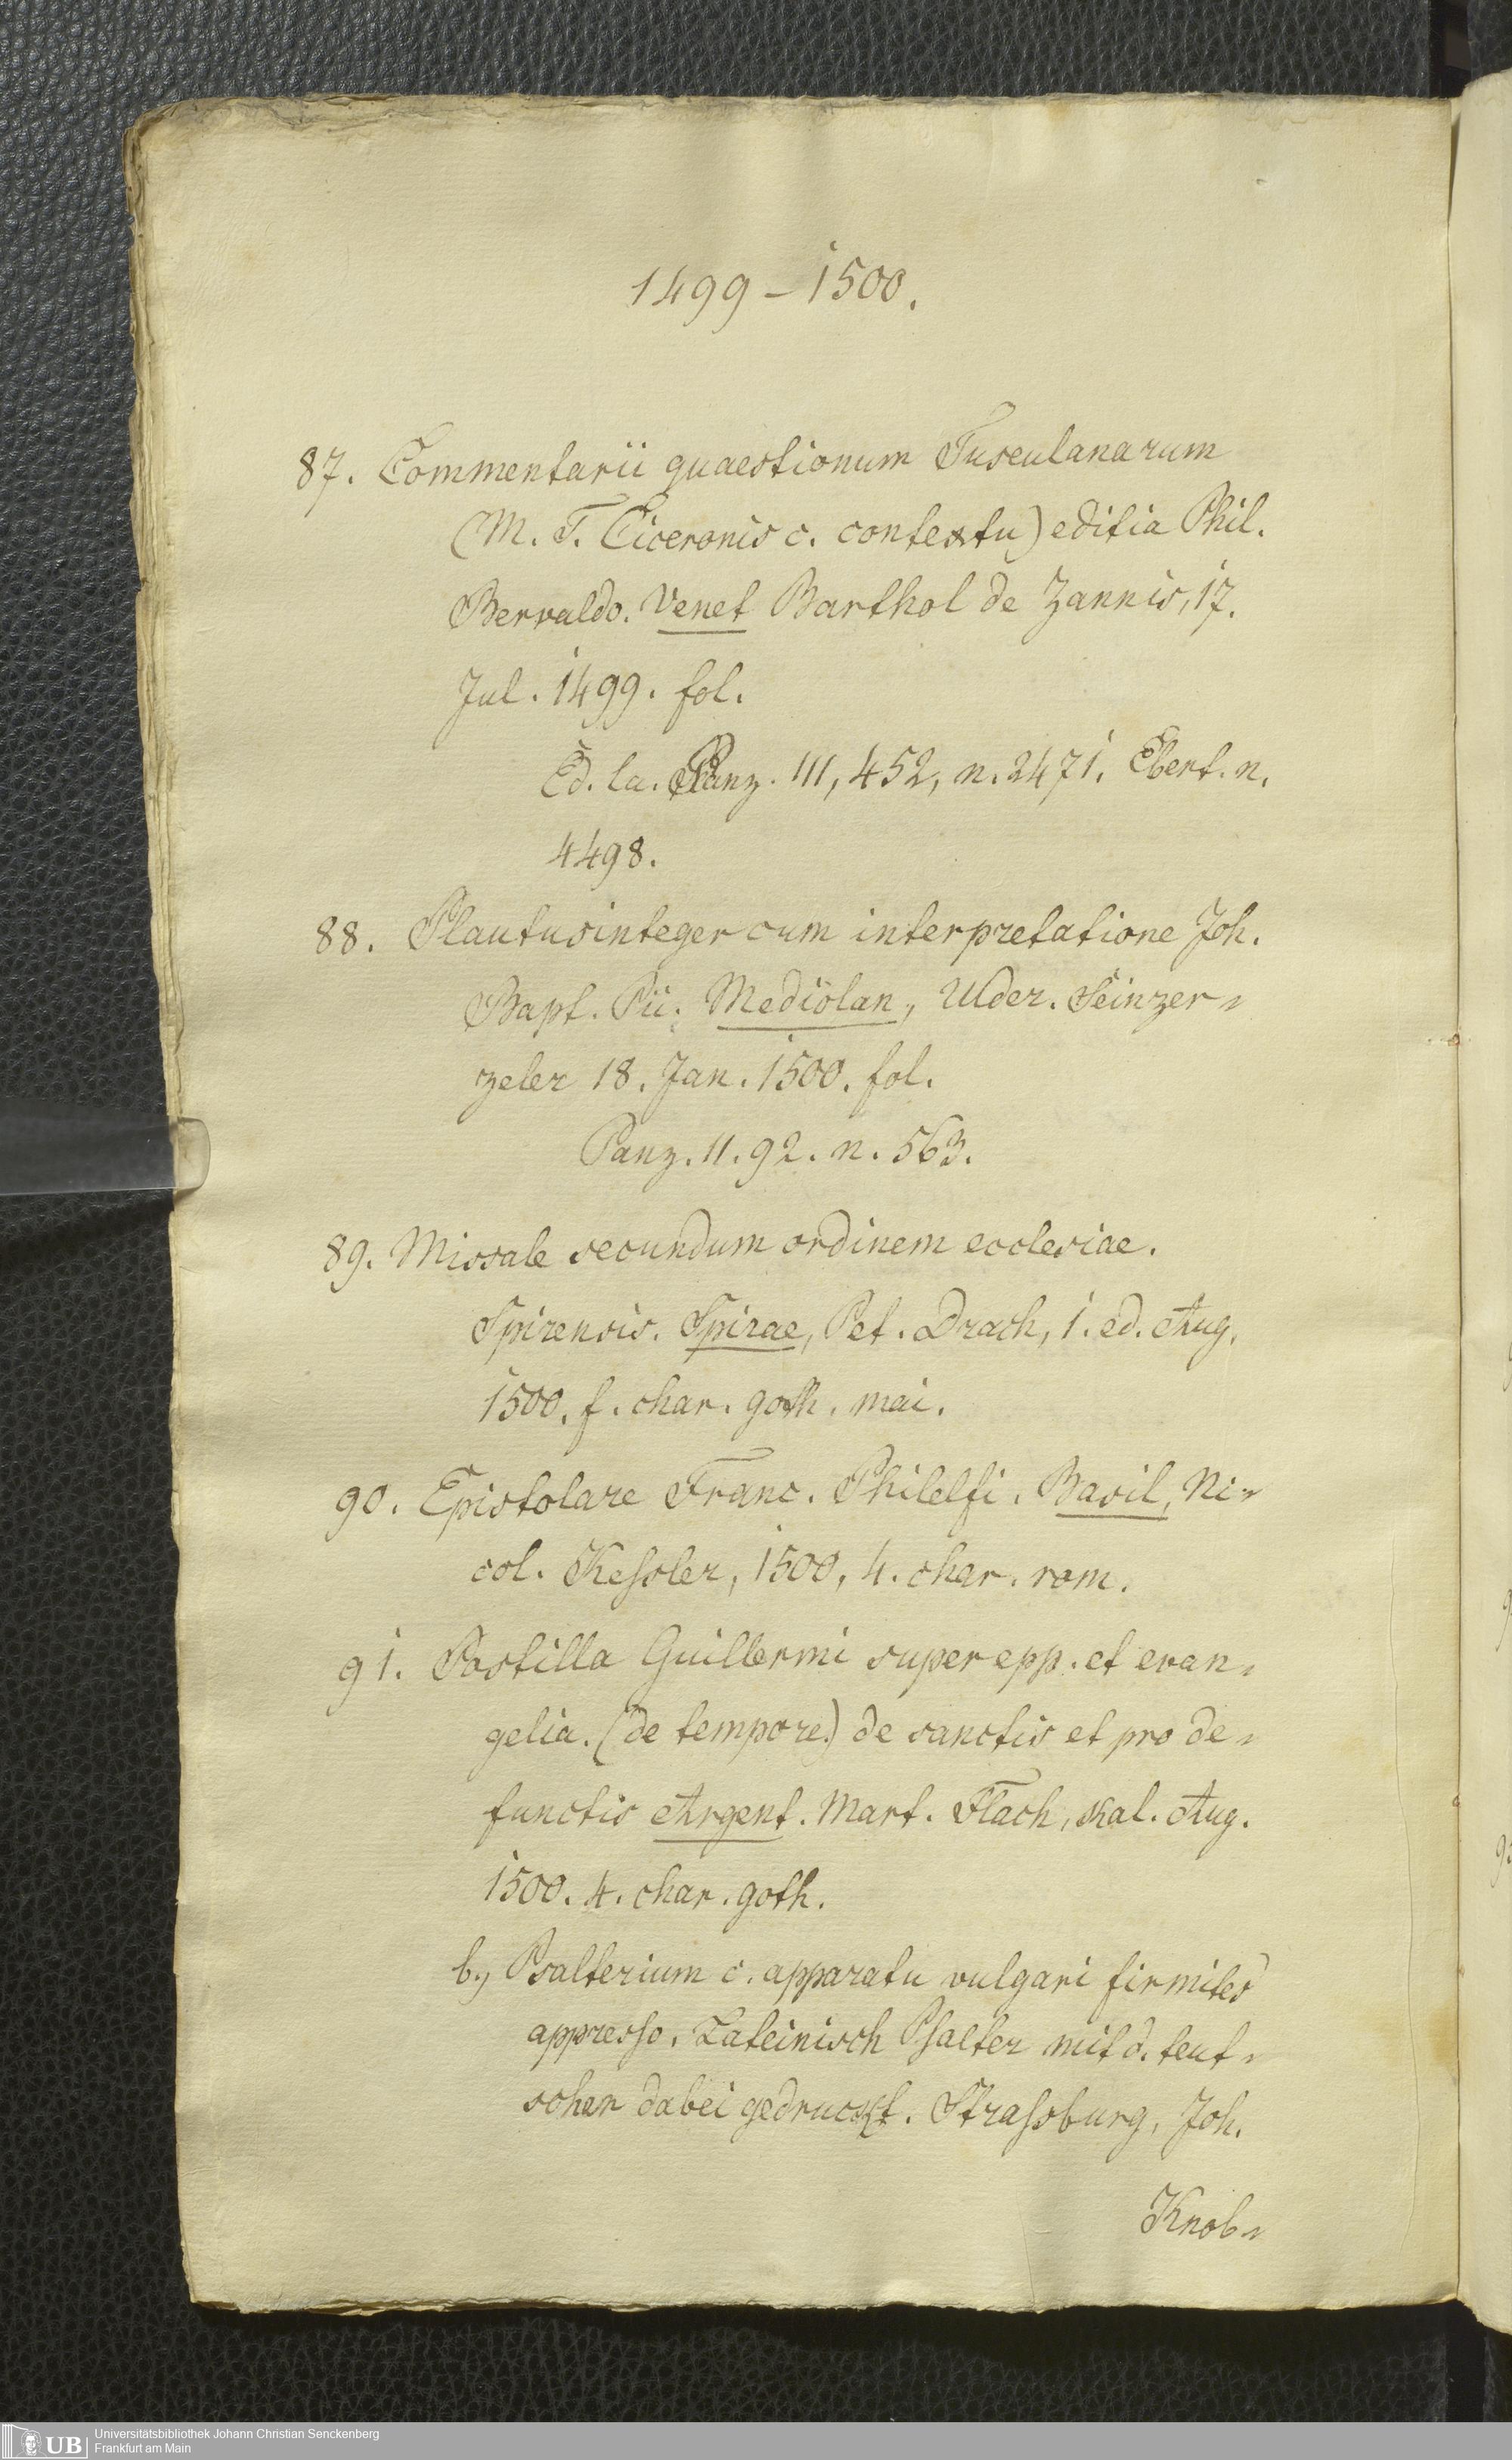 1499 – 1500.
87. Commentarii quaestionum Tusculanarum
(M. T. Ciceronis c. contextu) editia Phil.
Bervaldo. Venet Barthol de Zannis, 17.
Jul. 1499. fol.
Ed. la. Panz. III, 452, n. 2471. Ebert. n.
4498.
88. Plautusinteger cum interpretatione Joh.
Bapt. Pii; Mediolan, Ulder. Seinzer-
zeler 18. Jan. 1500. fol.
Panz. II. 92. n. 563.
89. Missale secundum ordinem ecclesiae.
Spirensis. Spirae, Pet. Drach, 1. ed. Aug.
1500. f. char. goth. mai.
90. Epistolare Franc. Philelfi. Basil, Ni-
col. Kessler, 1500, 4. char. rom.
91. Postilla Guillermi super epp. et evan-
gelia. (de tempore.) de sanctis et pro de-
functis Argent. Mart. Flach, Kal. Aug.
1500. 4. char. goth.
b., Psalterium c. apparatu vulgari firmites
appresso. Lateinisch Psalter mit d. teut-
schen dabei gedruckt. Strassburg, Joh.
Knob-
UB
Universitätsbibliothek Johann Christian Senckenberg
Frankfurt am Main